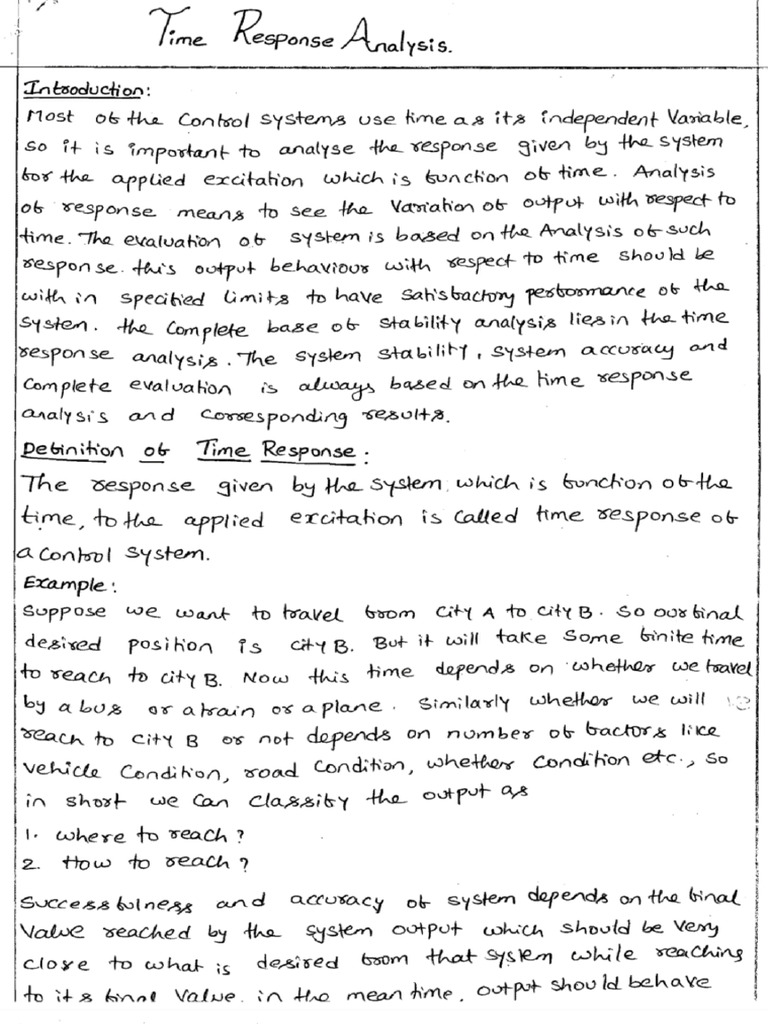 Time Response Analysis.
Introduction:
Most of the Control systems use time as its independent Variable,
so it is important to analyse the response given by the system
for the applied excitation which is function of time. Analysis
of response means to see the Variation of output with respect to
time. The evaluation of system is based on the Analysis of such
response. this output behaviour with respect to time should be
with in specified limits to have satisfactory performance of the
system. the Complete base of stability analysis lies in the time
response analysis. The system stability, system accuracy and
Complete evaluation is always based on the time response
analysis and corresponding results.
Definition of Time Response:
The response given by the system which is function of the
time, to the applied excitation is called time response of
a Control system.
Example:
Suppose we want to travel from City A to City B. So our final
desired position is city B. But it will take Some finite time
to reach to city B. Now this time depends on whether we travel
by a bus or a train or a plane. Similarly whether we will
reach to City B or not depends on number of factors like
vehicle Condition, road Condition, whether Condition etc., so
in short we Can Classify the output as
1. where to reach?
2. How to reach?
Successfulness and accuracy of system depends on the final
Value reached by the system output which should be very
close to what is desired from that system while reaching
to its final Value. in the mean time, output should behave